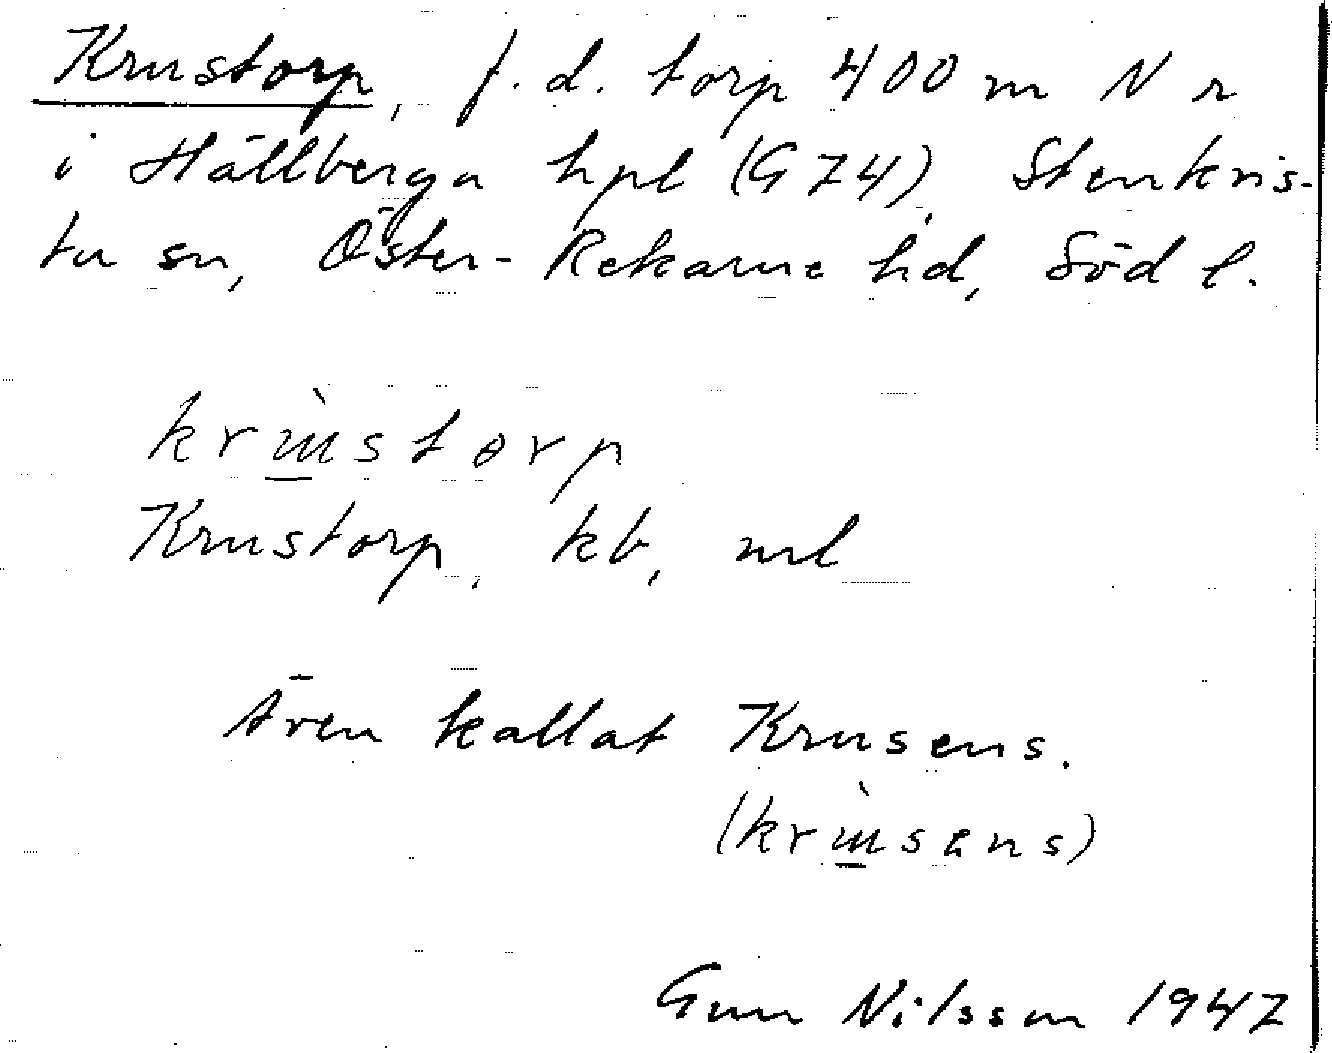 Krustorp, f.d. torp 400 m N r
i Hällberga hpl (G74), Stenkvis-
ta sn, Öster-Rekarne hd, Söd l.
krùstorp
Krustorp, kb, ml
Även kallat Krusens.
(krùsəns)
Gun Nilsson 1947